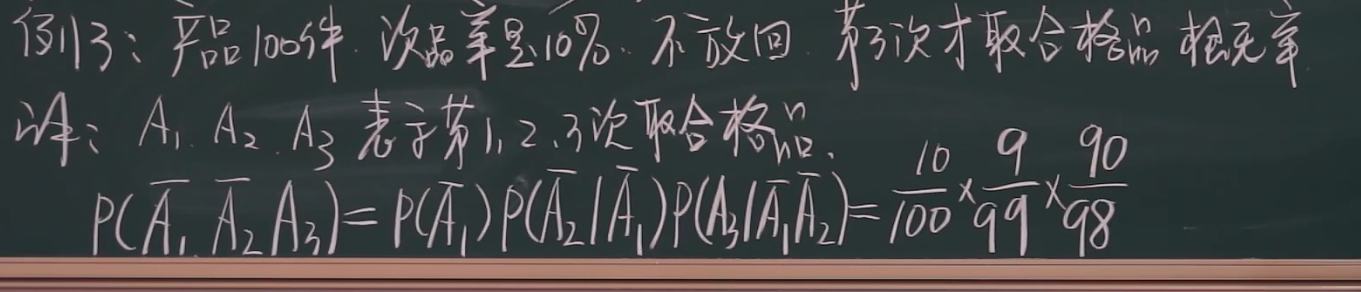 例13: 产品100件. 次品率是10%. 不放回 第3次才取合格品 概率
解: A₁. A₂. A₃ 表示第1,2.3次取合格品.
P(A̅₁ A̅₂ A₃)=P(A̅₁)P(A̅₂|A̅₁)P(A₃|A̅₁A̅₂)=10/100×9/99×90/98